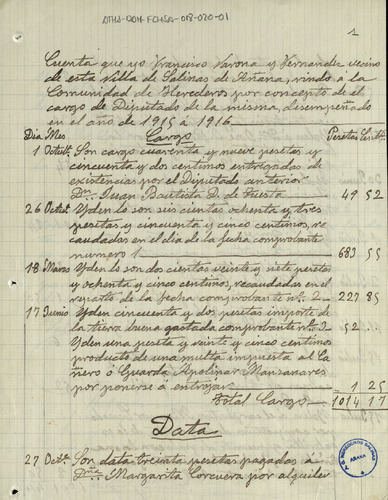 ATHA-DAH-FCHSA-018-020-01
1
Cuenta que yo Francisco Varona y Fernandez vecino
de esta Villa de Salinas de Añana, rindo á la
Comunidad de Herederos por concepto de el
cargo de Diputado de la misma, desempeñado
en el año de 1915 á 1916
Dia Mes Cargo Pesetas Cents
1 Octubre Son cargo cuarenta y nueve pesetas y
cincuenta y dos centimos entregadas de
existencias por el Diputado anterior
Dn Juan Bautista D. de Tuesta 49 52
26 Octbre Yden lo son seis cientas ochenta y tres
pesetas y cincuenta y cinco centimos, re
caudadas en el dia de la fecha comprobante
numero 1 683 55
18 Marzo Yden lo son dos cientas veinte y siete pesetas
y ochenta y cinco centimos, recaudadas en el
reparto de la fecha comprobante nº 2 227 85
17 Junio Yden cincuenta y dos pesetas importe de
la tierra buena gastada comprobante nº 3 52
Yden una peseta y veinte y cinco centimos
producto de una multa impuesta al Ca
ñero ó Guarda Apolinar Manzanares
por ponerse á entrojar 1 25
Total Cargo 1014 17
Data
27 Octe Son data treinta pesetas pagadas á
Dña Margarita Corcuera por alquiler
HEREDEROS SALINAS
AÑANA